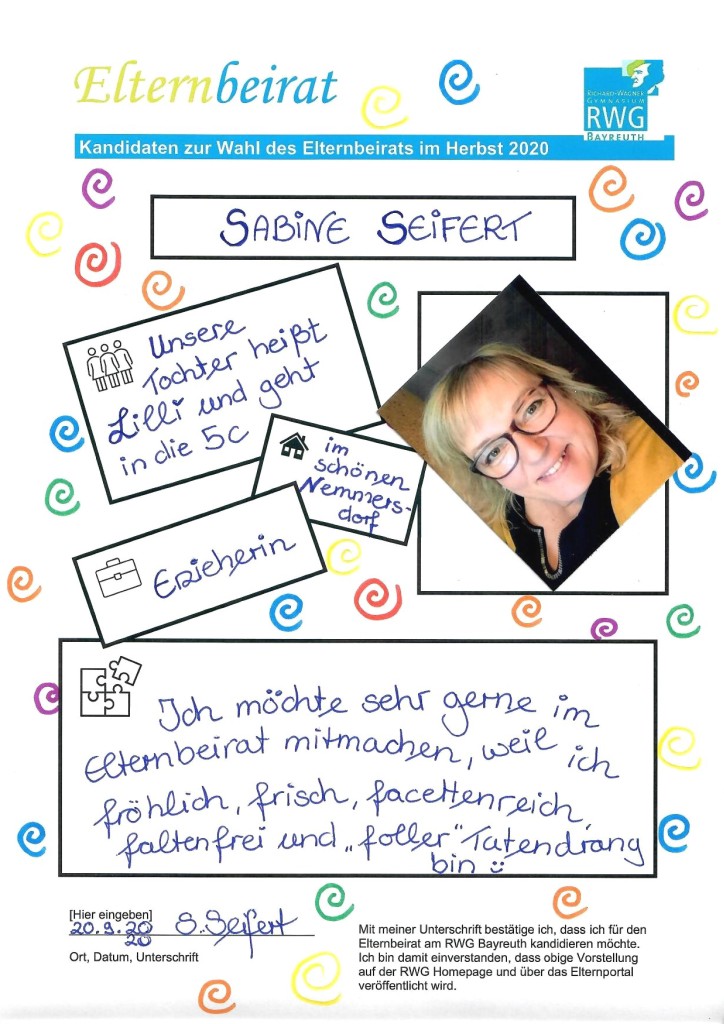 Elternbeirat
RICHARD-WAGNER
GYMNASIUM
RWG
BAYREUTH
Kandidaten zur Wahl des Elternbeirats im Herbst 2020
SABINE SEIFERT
Unsere
Tochter heißt
Lilli und geht
in die 5c
im
schönen
Nemmers-
dorf
Erzieherin
Ich möchte sehr gerne im
Elternbeirat mitmachen, weil ich
fröhlich, frisch, facettenreich,
faltenfrei und „foller" Tatendrang
bin
[Hier eingeben]
20.9.20 S. Seifert
20
Ort, Datum, Unterschrift
Mit meiner Unterschrift bestätige ich, dass ich für den
Elternbeirat am RWG Bayreuth kandidieren möchte.
Ich bin damit einverstanden, dass obige Vorstellung
auf der RWG Homepage und über das Elternportal
veröffentlicht wird.